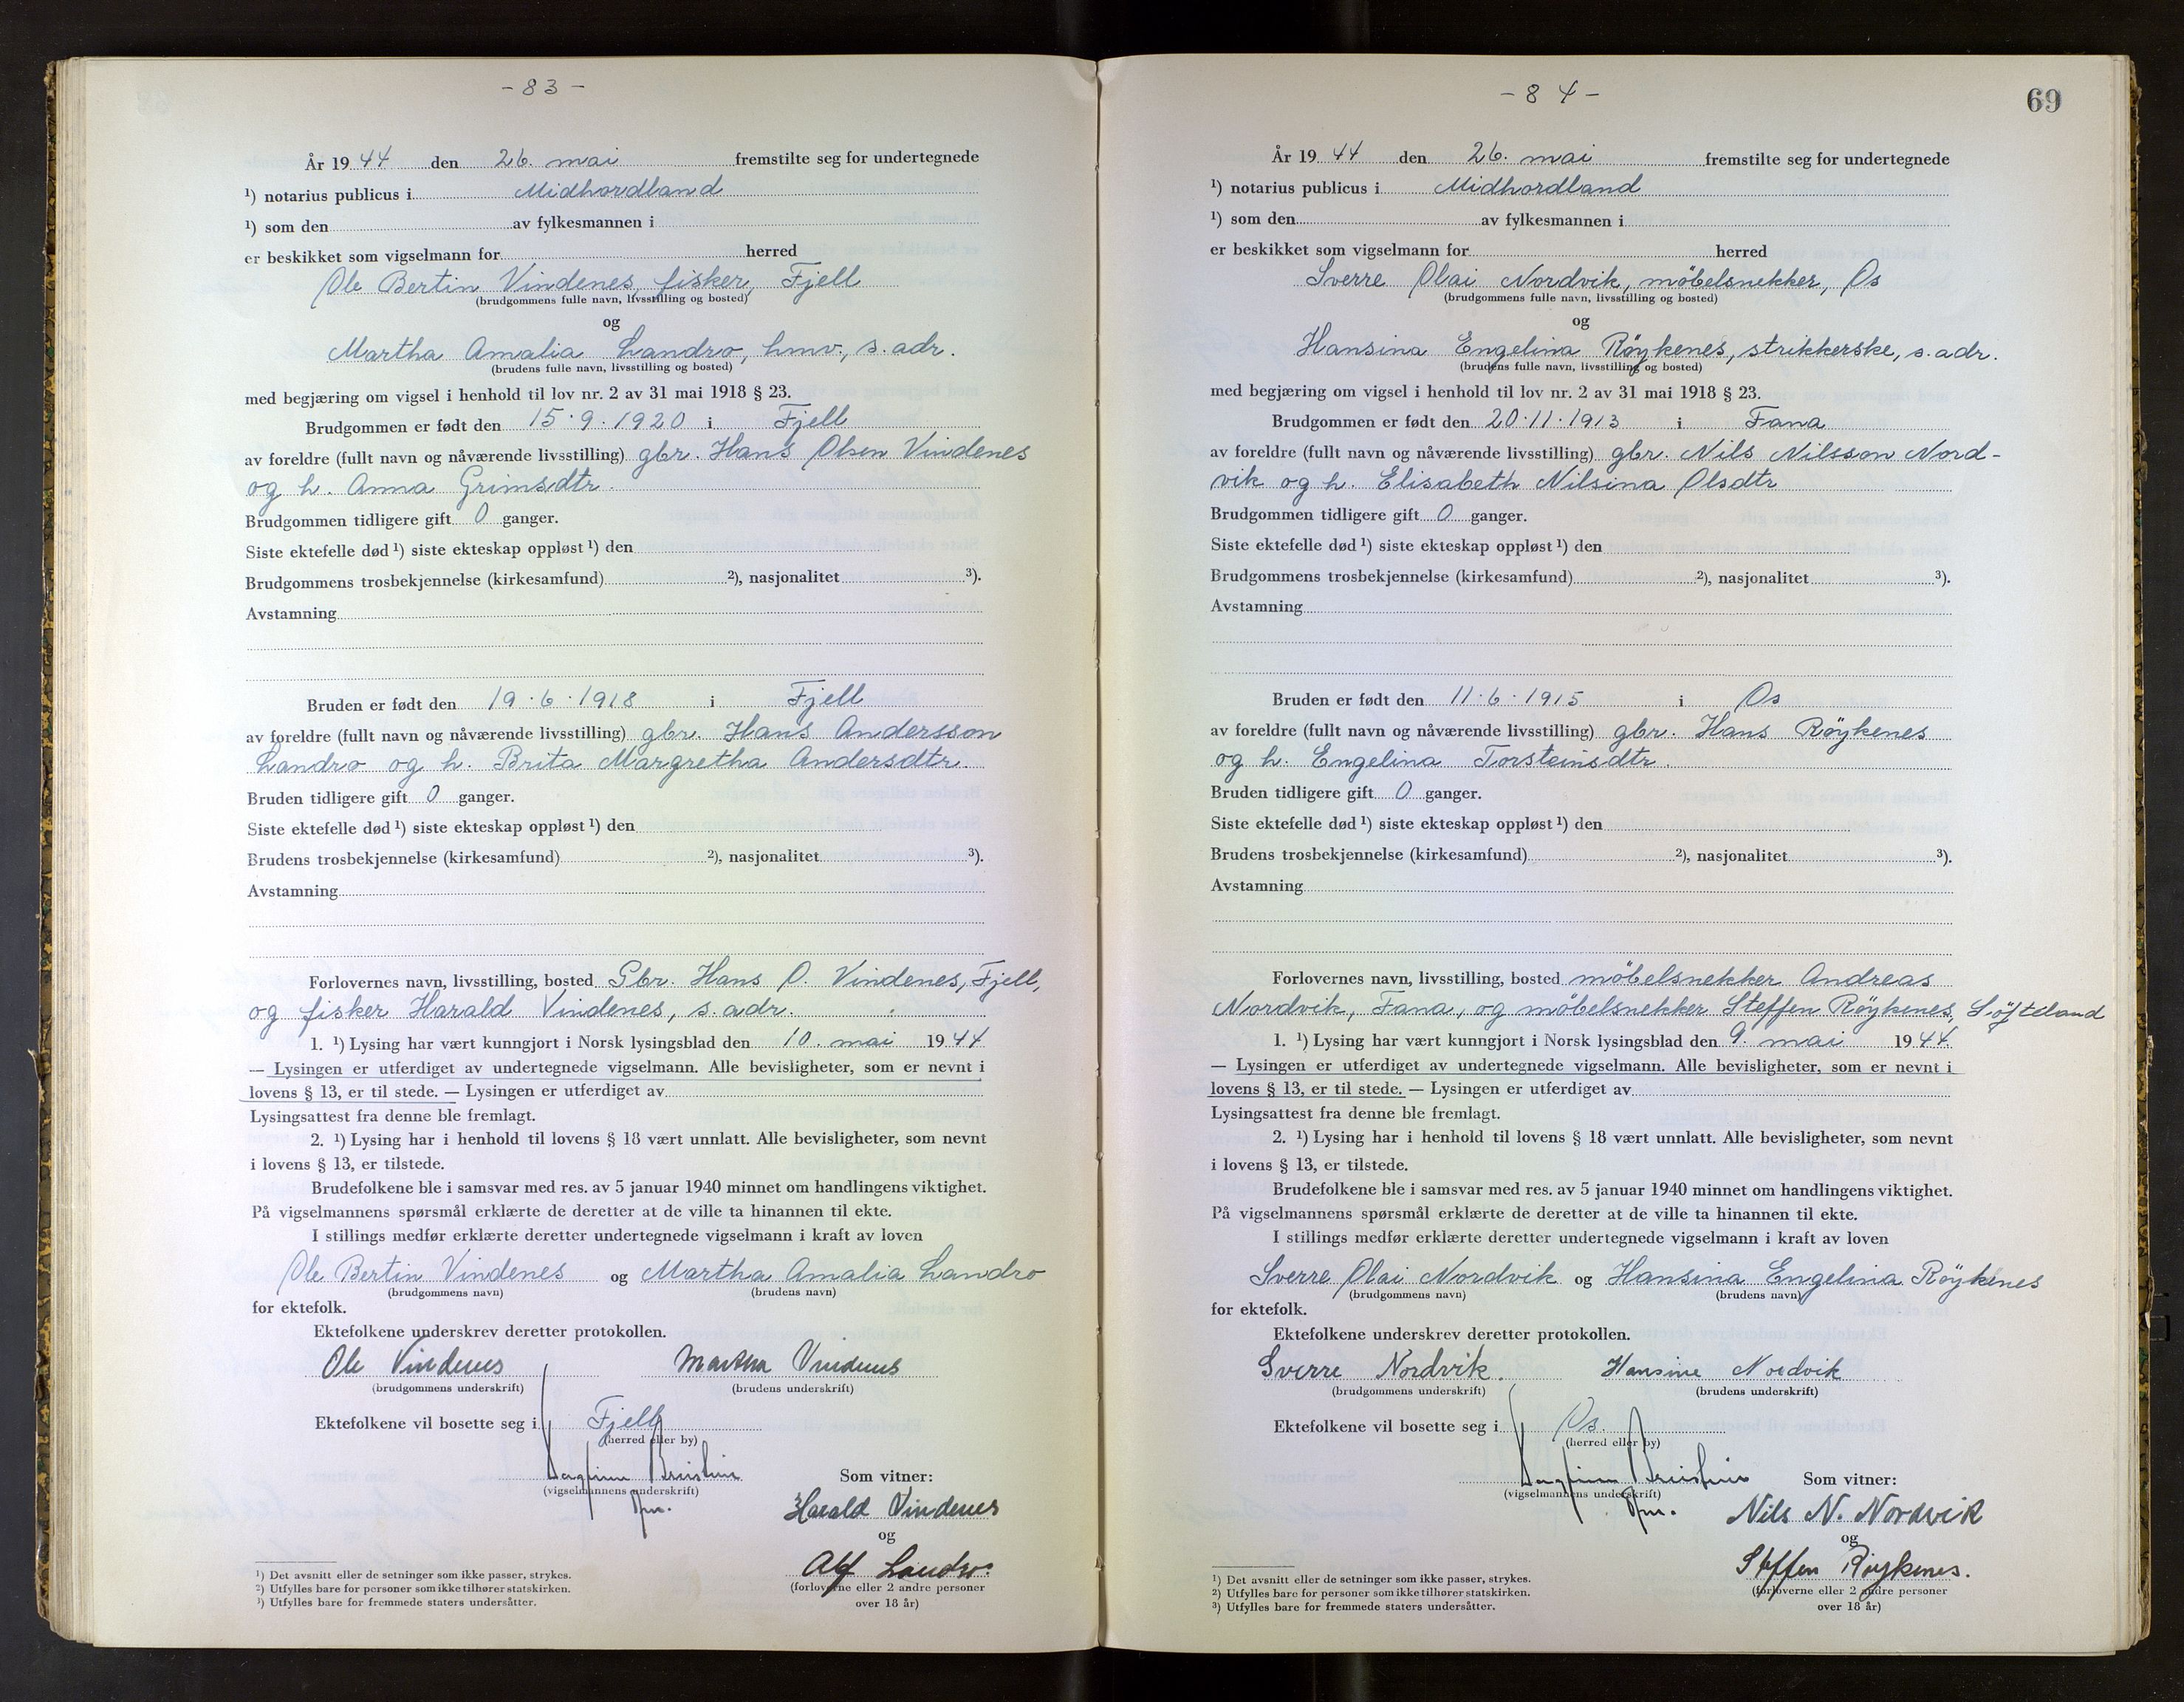 - 83 -
År 19 44 den 26. mai fremstilte seg for undertegnede
¹) notarius publicus i Midhordland
¹) som den av fylkesmannen i
er beskikket som vigselmann for herred
Ole Bertin Vindenes, fisker, Fjell
(brudgommens fulle navn, livsstilling og bosted)
og
Martha Amalia Landro, hmv., s. adr.
(brudens fulle navn, livsstilling og bosted)
med begjæring om vigsel i henhold til lov nr. 2 av 31 mai 1918 § 23.
Brudgommen er født den 15.9.1920 i Fjell
av foreldre (fullt navn og nåværende livsstilling) gbr. Hans Olsen Vindenes
og h. Anna Grimsdtr.
Brudgommen tidligere gift 0 ganger.
Siste ektefelle død ¹) siste ekteskap oppløst ¹) den
Brudgommens trosbekjennelse (kirkesamfund) ²), nasjonalitet ³).
Avstamning
Bruden er født den 19.6.1918 i Fjell
av foreldre (fullt navn og nåværende livsstilling) gbr. Hans Andersson
Landro og h. Brita Margretha Andersdtr.
Bruden tidligere gift 0 ganger.
Siste ektefelle død ¹) siste ekteskap oppløst ¹) den
Brudens trosbekjennelse (kirkesamfund) ²), nasjonalitet ³).
Avstamning
Forlovernes navn, livsstilling, bosted Gbr. Hans O. Vindenes, Fjell,
og fisker Harald Vindenes, s. adr.
1. ¹) Lysing har vært kunngjort i Norsk lysingsblad den 10. mai 19 44
— Lysingen er utferdiget av undertegnede vigselmann. Alle bevisligheter, som er nevnt i
lovens § 13, er til stede. — Lysingen er utferdiget av
Lysingsattest fra denne ble fremlagt.
2. ¹) Lysing har i henhold til lovens § 18 vært unnlatt. Alle bevisligheter, som nevnt
i lovens § 13, er tilstede.
Brudefolkene ble i samsvar med res. av 5 januar 1940 minnet om handlingens viktighet.
På vigselmannens spørsmål erklærte de deretter at de ville ta hinannen til ekte.
I stillings medfør erklærte deretter undertegnede vigselmann i kraft av loven
Ole Bertin Vindenes og Martha Amalia Landro
(brudgommens navn) (brudens navn)
for ektefolk.
Ektefolkene underskrev deretter protokollen.
Ole Vindenes Martha Vindenes
(brudgommens underskrift) (brudens underskrift)
Ektefolkene vil bosette seg i Fjell
(herred eller by)
(vigselmannens underskrift)
Som vitner:
Harald Vindenes
og
Alf Landro.
(forloverne eller 2 andre personer
over 18 år)
¹) Det avsnitt eller de setninger som ikke passer, strykes.
²) Utfylles bare for personer som ikke tilhører statskirken.
³) Utfylles bare for fremmede staters undersåtter.
- 84 -
69
År 19 44 den 26. mai fremstilte seg for undertegnede
¹) notarius publicus i Midhordland
¹) som den av fylkesmannen i
er beskikket som vigselmann for herred
Sverre Olai Nordvik, möbelsnekker, Os
(brudgommens fulle navn, livsstilling og bosted)
og
Hansina Engelina Röykenes, strikkerske, s. adr.
(brudens fulle navn, livsstilling og bosted)
med begjæring om vigsel i henhold til lov nr. 2 av 31 mai 1918 § 23.
Brudgommen er født den 20.11.1913 i Fana
av foreldre (fullt navn og nåværende livsstilling) gbr. Nils Nilsson Nord-
vik og h. Elisabeth Nilsina Olsdtr
Brudgommen tidligere gift 0 ganger.
Siste ektefelle død ¹) siste ekteskap oppløst ¹) den
Brudgommens trosbekjennelse (kirkesamfund) ²), nasjonalitet ³).
Avstamning
Bruden er født den 11.6.1915 i Os
av foreldre (fullt navn og nåværende livsstilling) gbr. Hans Röykenes
og h. Engelina Torsteinsdtr.
Bruden tidligere gift 0 ganger.
Siste ektefelle død ¹) siste ekteskap oppløst ¹) den
Brudens trosbekjennelse (kirkesamfund) ²), nasjonalitet ³).
Avstamning
Forlovernes navn, livsstilling, bosted möbelsnekker Andreas
Nordvik, Fana, og möbelsnekker Steffen Röykenes, Söfteland
1. ¹) Lysing har vært kunngjort i Norsk lysingsblad den 9. mai 19 44.
— Lysingen er utferdiget av undertegnede vigselmann. Alle bevisligheter, som er nevnt i
lovens § 13, er til stede. — Lysingen er utferdiget av
Lysingsattest fra denne ble fremlagt.
2. ¹) Lysing har i henhold til lovens § 18 vært unnlatt. Alle bevisligheter, som nevnt
i lovens § 13, er tilstede.
Brudefolkene ble i samsvar med res. av 5 januar 1940 minnet om handlingens viktighet.
På vigselmannens spørsmål erklærte de deretter at de ville ta hinannen til ekte.
I stillings medfør erklærte deretter undertegnede vigselmann i kraft av loven
Sverre Olai Nordvik og Hansina Engelina Röykenes
(brudgommens navn) (brudens navn)
for ektefolk.
Ektefolkene underskrev deretter protokollen.
Sverre Nordvik. Hansine Nordvik
(brudgommens underskrift) (brudens underskrift)
Ektefolkene vil bosette seg i Os.
(herred eller by)
(vigselmannens underskrift)
Som vitner:
Nils N. Nordvik
og
Steffen Röykenes.
(forloverne eller 2 andre personer
over 18 år)
¹) Det avsnitt eller de setninger som ikke passer, strykes.
²) Utfylles bare for personer som ikke tilhører statskirken.
³) Utfylles bare for fremmede staters undersåtter.